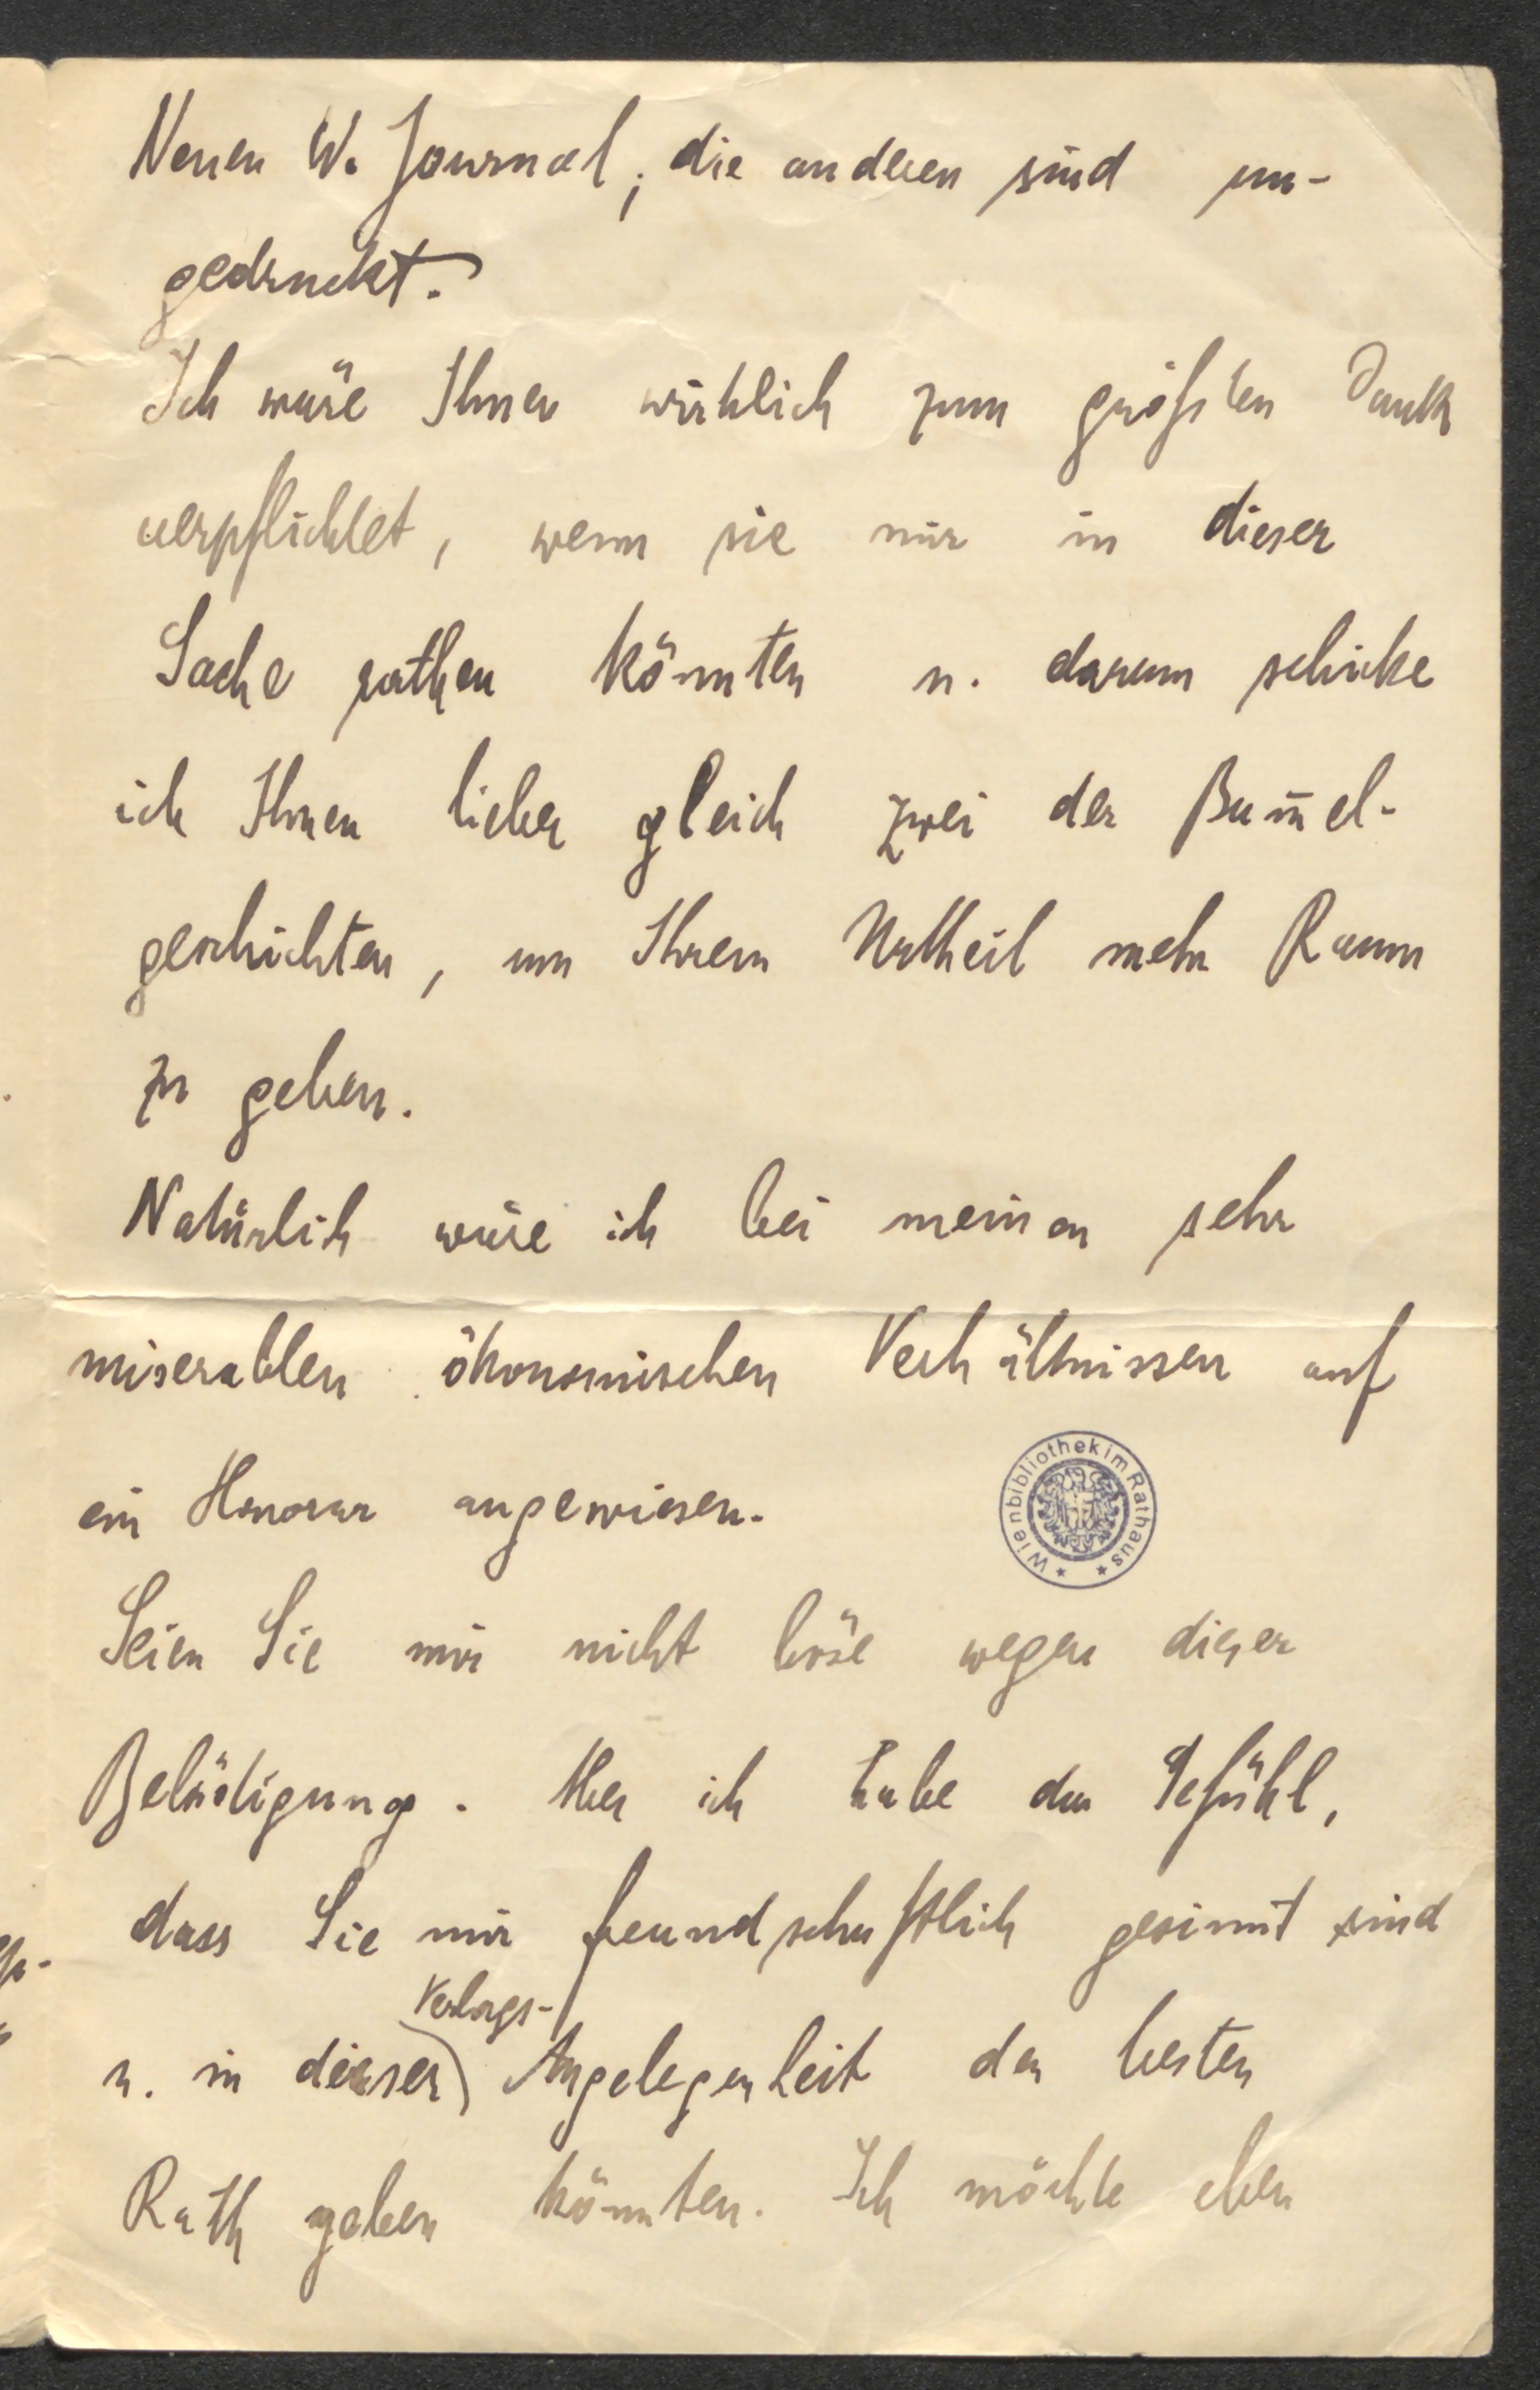 Neuen W. Journal, die anderen sind un-
gedruckt.
Ich wäre Ihnen wirklich zum größten Dank
verpflichtet, wenn sie mir in dieser
Sache rathen könnten u. darum schicke
ich Ihnen lieber gleich zwei der Bum̄el-
geschichten, um Ihrem Urtheil mehr Raum
zu geben.
Natürlich wäre ich bei meinen sehr
miserablen ökonomischen Verhältnissen auf
ein Honorar angewiesen.
Wienbibliothek im Rathaus
Seien Sie mir nicht böse wegen dieser
Belästigung. Aber ich habe das Gefühl,
dass Sie mir freundschaftlich gesinnt sind
Verlags-
u. in dieser Angelegenheit den besten
Rath geben könnten. Ich möchte eben